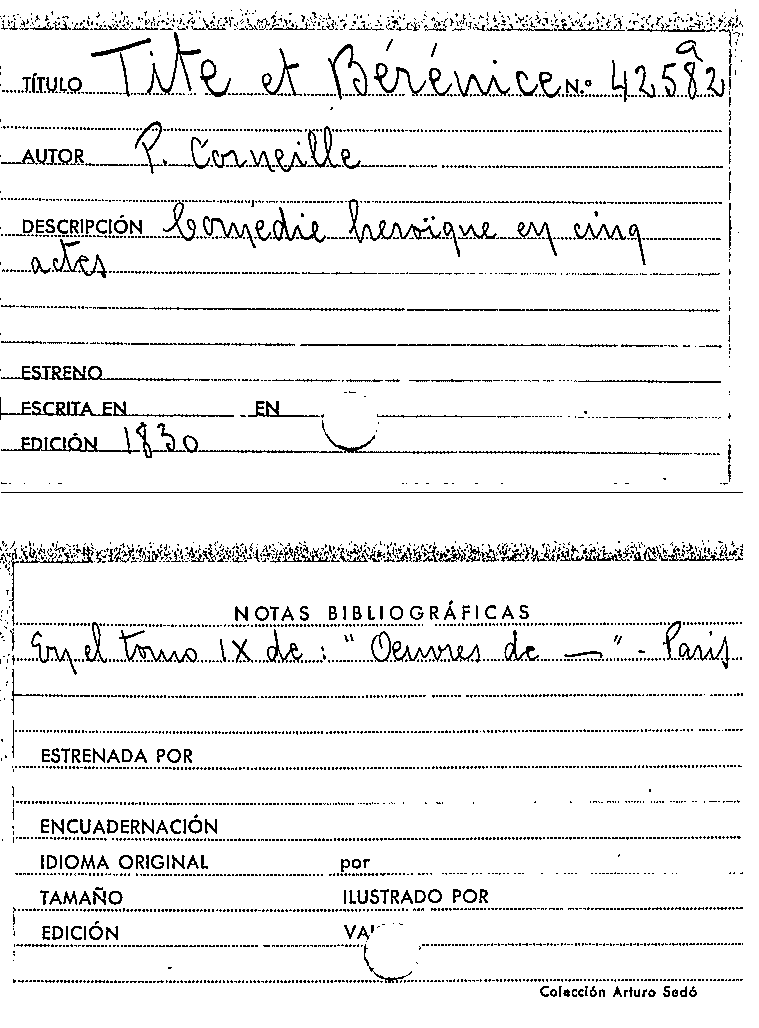 TÍTULO Tite et Bérénice N.º 42582 a
AUTOR P. Corneille
DESCRIPCIÓN Comédie heroïque en cinq
actes
ESTRENO
ESCRITA EN EN
EDICIÓN 1830
NOTAS BIBLIOGRÁFICAS
En el tomo IX de: "Oeuvres de —" - Paris
ESTRENADA POR
ENCUADERNACIÓN
IDIOMA ORIGINAL por
TAMAÑO ILUSTRADO POR
EDICIÓN
Colección Arturo Sedó